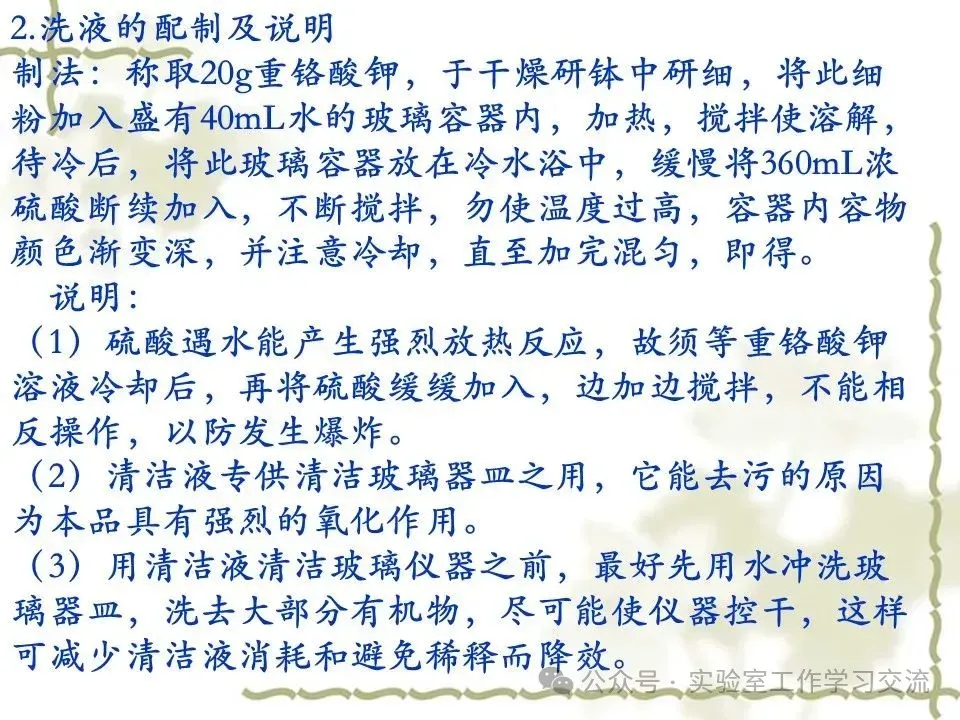 2.洗液的配制及说明
制法：称取20g重铬酸钾，于干燥研钵中研细，将此细
粉加入盛有40mL水的玻璃容器内，加热，搅拌使溶解，
待冷后，将此玻璃容器放在冷水浴中，缓慢将360mL浓
硫酸断续加入，不断搅拌，勿使温度过高，容器内容物
颜色渐变深，并注意冷却，直至加完混匀，即得。
说明：
（1）硫酸遇水能产生强烈放热反应，故须等重铬酸钾
溶液冷却后，再将硫酸缓缓加入，边加边搅拌，不能相
反操作，以防发生爆炸。
（2）清洁液专供清洁玻璃器皿之用，它能去污的原因
为本品具有强烈的氧化作用。
（3）用清洁液清洁玻璃仪器之前，最好先用水冲洗玻
璃器皿，洗去大部分有机物，尽可能使仪器控干，这样
可减少清洁液消耗和避免稀释而降效。
公众号·实验室工作学习交流